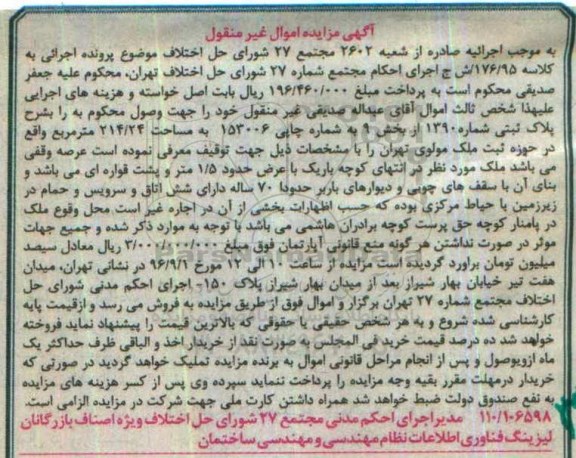 آگهی مزایده اموال غیر منقول
به موجب اجرائیه صادره از شعبه ۲۶۰۲ مجتمع ۲۷ شورای حل اختلاف موضوع پرونده اجرائی به
کلاسه ۱۷۶/۹۵/ش ج اجرای احکام مجتمع شماره ۲۷ شورای حل اختلاف تهران، محکوم علیه جعفر
صدیقی محکوم است به پرداخت مبلغ ۱۹۶/۴۶۰/۰۰۰ ریال بابت اصل خواسته و هزینه های اجرایی
علیهذا شخص ثالث اموال آقای عبداله صدیقی غیر منقول خود را جهت وصول محکوم به را بشرح
پلاک ثبتی شماره ۱۳۹۰ از بخش ۹ به شماره چاپی ۱۵۳۰۰۶ به مساحت ۲۱۴/۲۴ مترمربع واقع
در حوزه ثبت ملک مولوی تهران را با مشخصات ذیل جهت توقیف معرفی نموده است عرصه وقفی
می باشد ملک مورد نظر در انتهای کوچه باریک با عرض حدود ۱/۵ متر و پشت قواره ای می باشد و
بنای آن با سقف های چوبی و دیوارهای باربر حدودا ۷۰ ساله دارای شش اتاق و سرویس و حمام در
زیرزمین با حیاط مرکزی بوده که حسب اظهارات بخشی از آن در اجاره غیر است محل وقوع ملک
در پامنار کوچه حق پرست کوچه برادران هاشمی می باشد با توجه به موارد ذکر شده و جمیع جهات
موثر در صورت نداشتن هر گونه منع قانونی آپارتمان فوق مبلغ ۳/۰۰۰/۰۰۰/۰۰۰ ریال معادل سیصد
میلیون تومان براورد گردیده است مزایده از ساعت ۱۱ الی ۱۲ مورخ ۹۶/۹/۱ در نشانی تهران، میدان
هفت تیر خیابان بهار شیراز بعد از میدان بهار شیراز پلاک ۱۵۰- اجرای احکم مدنی شورای حل
اختلاف مجتمع شماره ۲۷ تهران برگزار و اموال فوق از طریق مزایده به فروش می رسد و ازقیمت پایه
کارشناسی شده شروع و به هر شخص حقیقی یا حقوقی که بالاترین قیمت را پیشنهاد نماید فروخته
خواهد شد ده درصد قیمت خرید فی المجلس به صورت نقد از خریدار اخذ و الباقی ظرف حداکثر یک
ماه ازوپوصول و پس از انجام مراحل قانونی اموال به برنده مزایده تملیک خواهد گردید در صورتی که
خریدار درمهلت مقرر بقیه وجه مزایده را پرداخت ننماید سپرده وی پس از کسر هزینه های مزایده
به نفع صندوق دولت ضبط خواهد شد همراه داشتن کارت ملی جهت شرکت در مزایده الزامی است.
۱۱۰/۱۰۶۵۹۸ مدیر اجرای احکم مدنی مجتمع ۲۷ شورای حل اختلاف ویژه اصناف بازرگانان
لیزینگ فناوری اطلاعات نظام مهندسی و مهندسی ساختمان